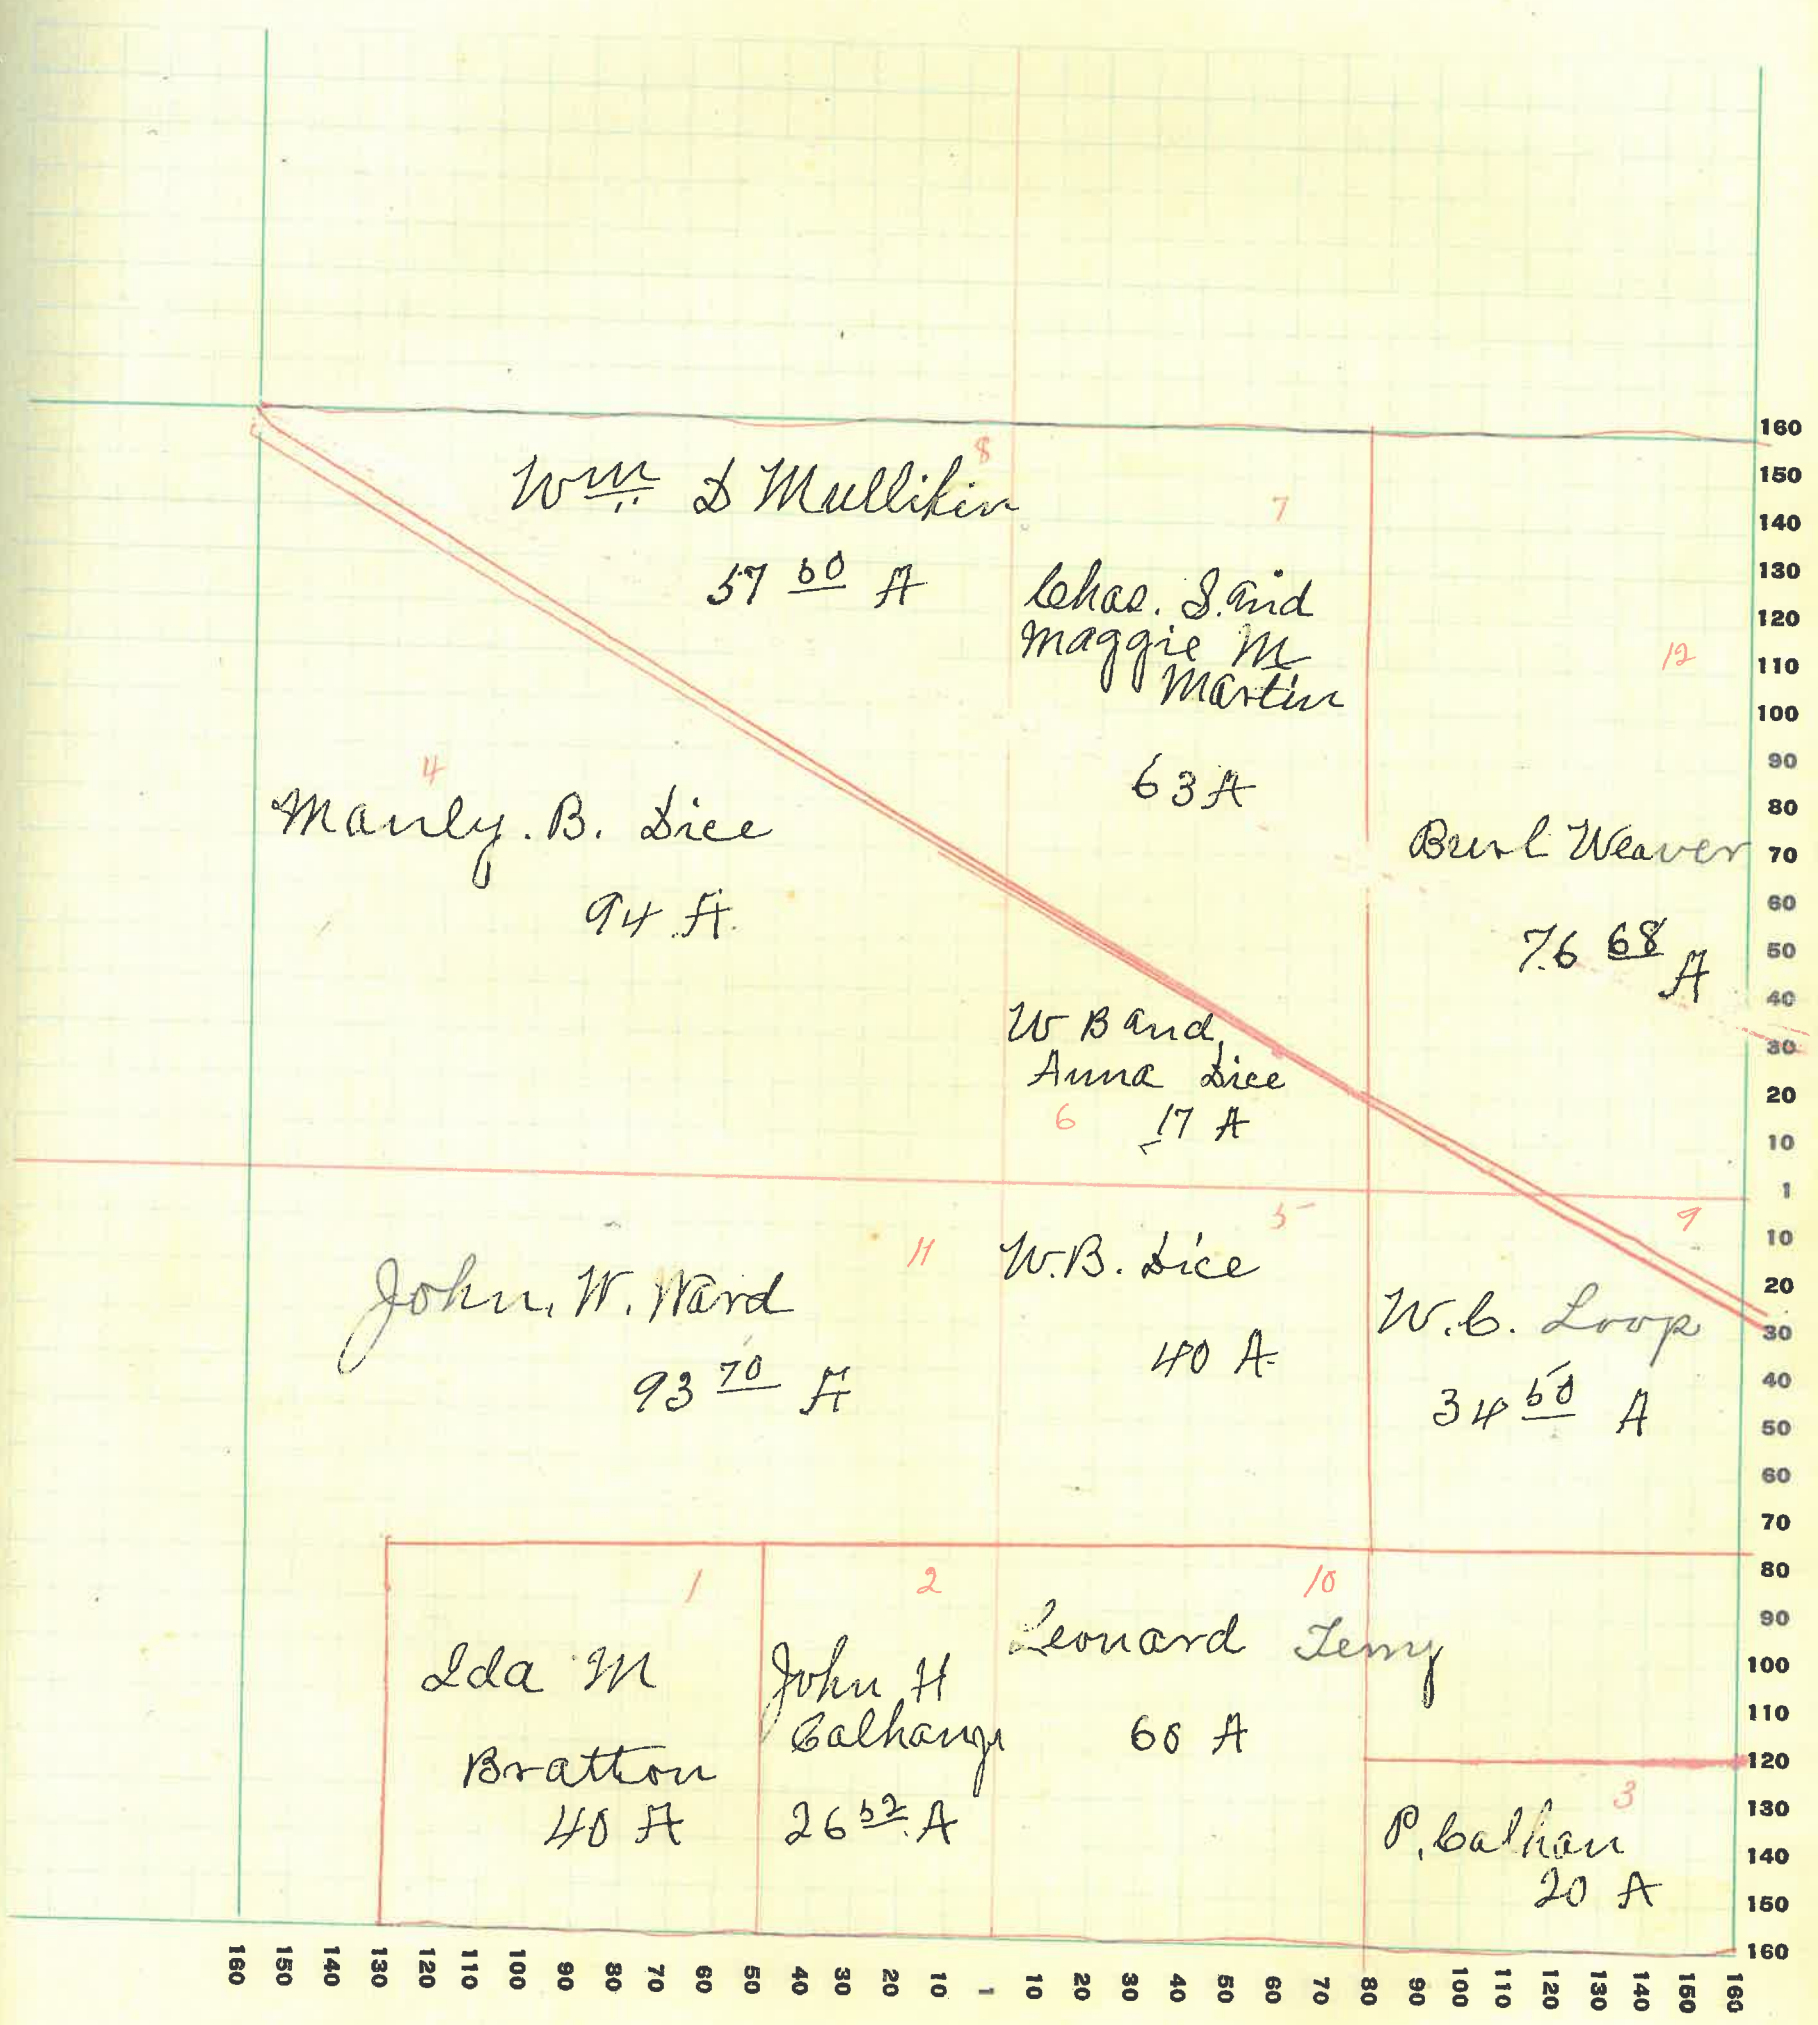 8
Wm. D Mullikin
57 50 A
7
Chas. S. and
Maggie M
Martin
63 A
12
Burl Weaver
76 68 A
4
Manly. B. Dice
94 A.
W B and
Anna Dice
6
17 A
11
John. W. Ward
93 70 A
5
W.B. Dice
40 A.
9
W.C. Loop
34 50 A
1
Ida M
Bratton
40 A
2
John H
26 52 A
10
Leonard Terry
60 A
3
P. Calhan
20 A
160
150
140
130
120
110
100
90
80
70
60
50
40
30
20
10
1
10
20
30
40
50
60
70
80
90
100
110
120
130
140
150
160
160 150 140 130 120 110 100 90 80 70 60 50 40 30 20 10 1 10 20 30 40 50 60 70 80 90 100 110 120 130 140 150 160